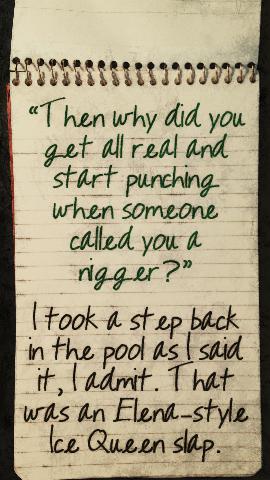 “Then why did you
get all real and
start punching
when someone
called you a
nigger?”
I took a step back
in the pool as I said
it, I admit. That
was an Elena-style
Ice Queen slap.